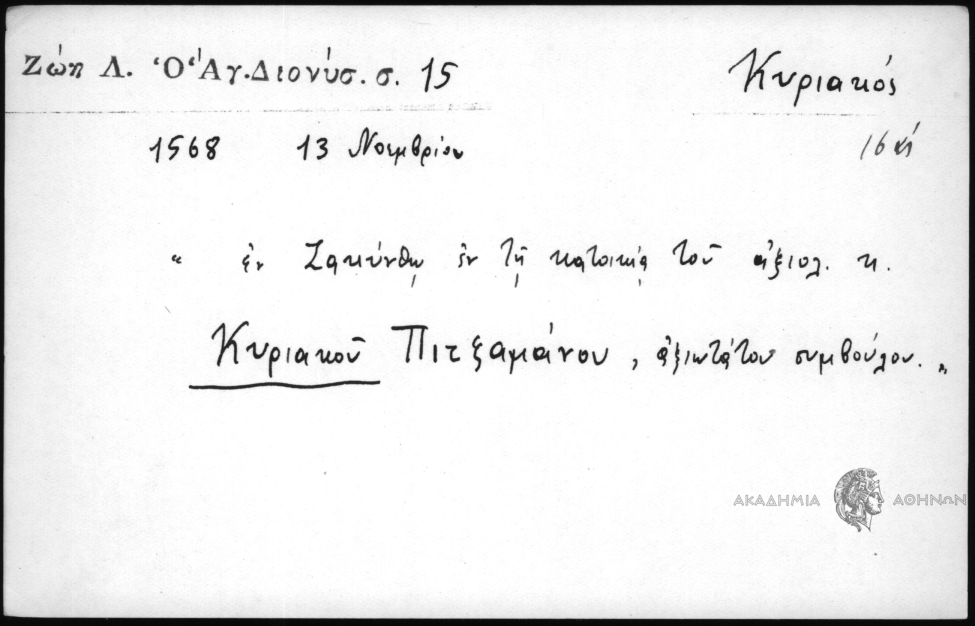 Ζώη Λ. Ὁ Ἅγ. Διονύσ. σ. 15 Κυριακός
1568 13 Νοεμβρίου 16
" ἐν Ζακύνθῳ ἐν τῇ κατοικίᾳ τοῦ ἀξιολ. κ.
Κυριακοῦ Πιτζαμάνου, ἀξιωτάτου συμβούλου. "
ΑΚΑΔΗΜΙΑ ΑΘΗΝΩΝ